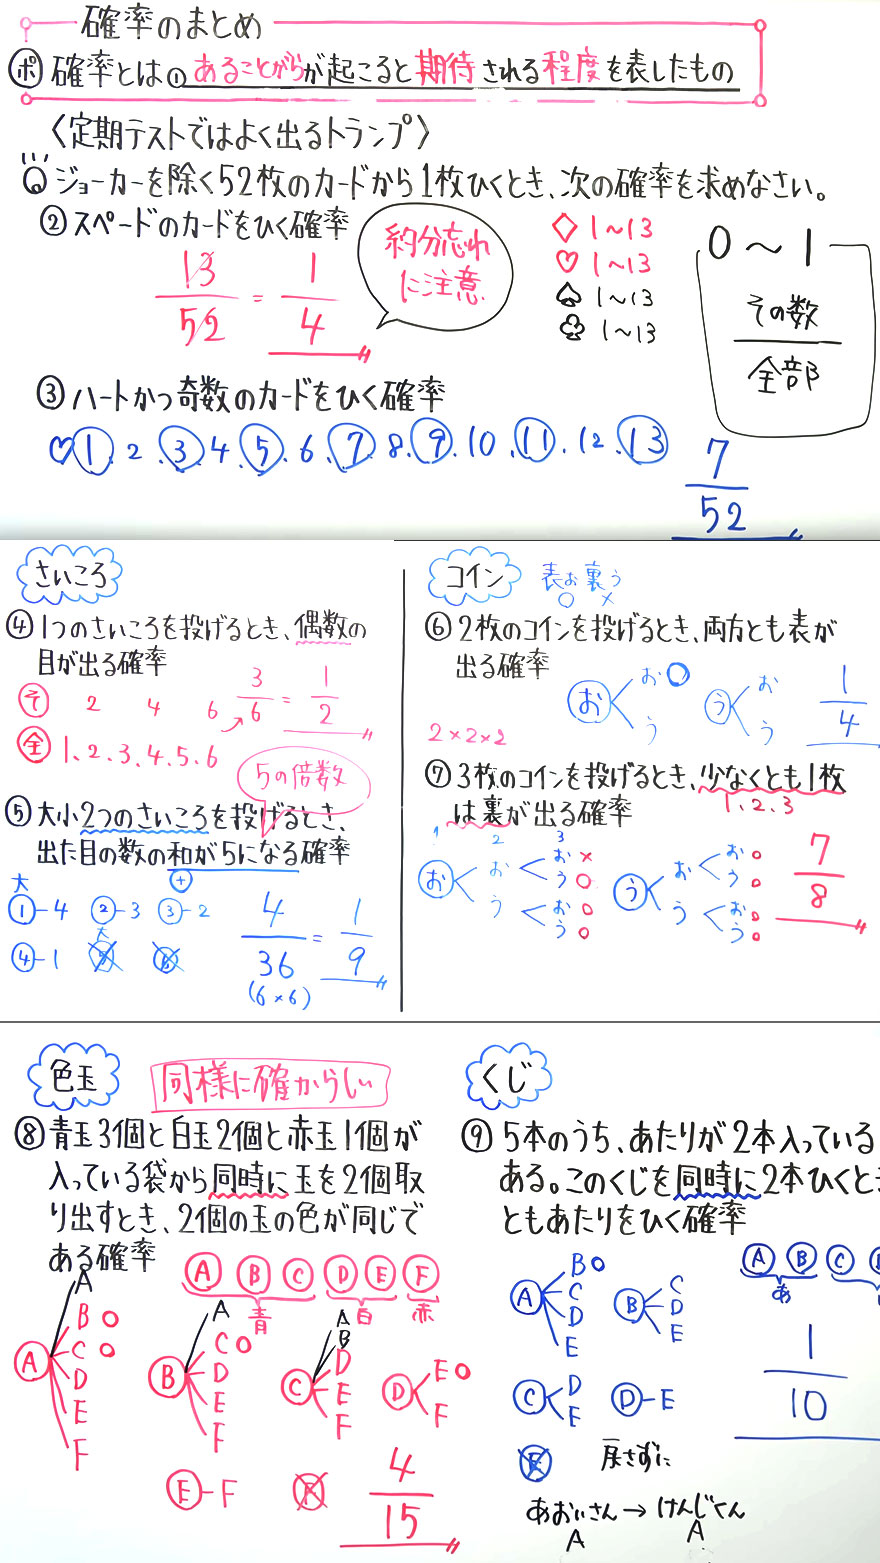 確率のまとめ
ポ 確率とは①あることがらが起こると期待される程度を表したもの
〈定期テストではよく出るトランプ〉
ジョーカーを除く52枚のカードから1枚ひくとき、次の確率を求めなさい。
②スペードのカードをひく確率
13/52 = 1/4
約分忘れ
に注意
♢ 1～13
♡ 1～13
♤ 1～13
♧ 1～13
0～1
その数
全部
③ハートかつ奇数のカードをひく確率
♡ 1. 2. 3. 4. 5. 6. 7. 8. 9. 10. 11. 12. 13
7/52
さいころ
④1つのさいころを投げるとき、偶数の
目が出る確率
そ 2 4 6 3/6 = 1/2
全 1、2、3、4、5、6
5の倍数
⑤大小2つのさいころを投げるとき、
出た目の数の和が5になる確率
大 +
①-4 ②-3 ③-2
大
④-1 5 6
4/36 = 1/9
(6×6)
コイン 表お 裏う
○ ×
⑥2枚のコインを投げるとき、両方とも表が
出る確率
お お○ う
う お う
1/4
2×2×2
⑦3枚のコインを投げるとき、少なくとも1枚
は裏が出る確率
1、2、3
1 2 3
お お お× う○
う お○ う○
う お お○ う○
う お○ う○
7/8
色玉 同様に確からしい
⑧青玉3個と白玉2個と赤玉1個が
入っている袋から同時に玉を2個取
り出すとき、2個の玉の色が同じで
ある確率
A B C D E F
青 白 赤
A A B○ C○ D E F
B A C○ D E F
C A B D E F
D E○ F
E-F F
4/15
くじ
⑨5本のうち、あたりが2本入っている
ある。このくじを同時に2本ひくとき
ともあたりをひく確率
A B C D
あ
A B○ C D E
B C D E
C D E
D-E
E
1/10
戻さずに
あおいさん→けんじくん
A A